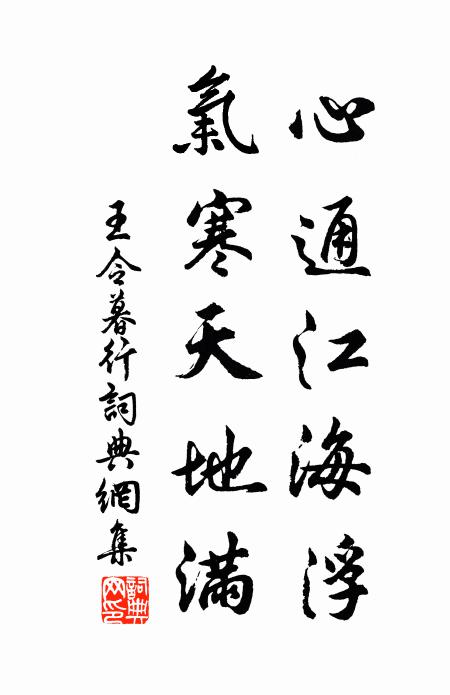 心通江海浮
氣寒天地滿
王令暮行詞典網集
詞典
网印